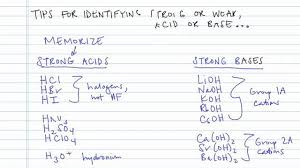 TIPS FOR IDENTIFYING STRONG OR WEAK,
ACID OR BASE...
MEMORIZE
STRONG ACIDS
HCl
HBr
HI
halogens,
not HF
HNO3
H2SO4
HClO4
H3O+ hydronium
STRONG BASES
LiOH
NaOH
KOH
RbOH
CsOH
Group 1A
cations
Ca(OH)2
Sr(OH)2
Ba(OH)2
Group 2A
cations